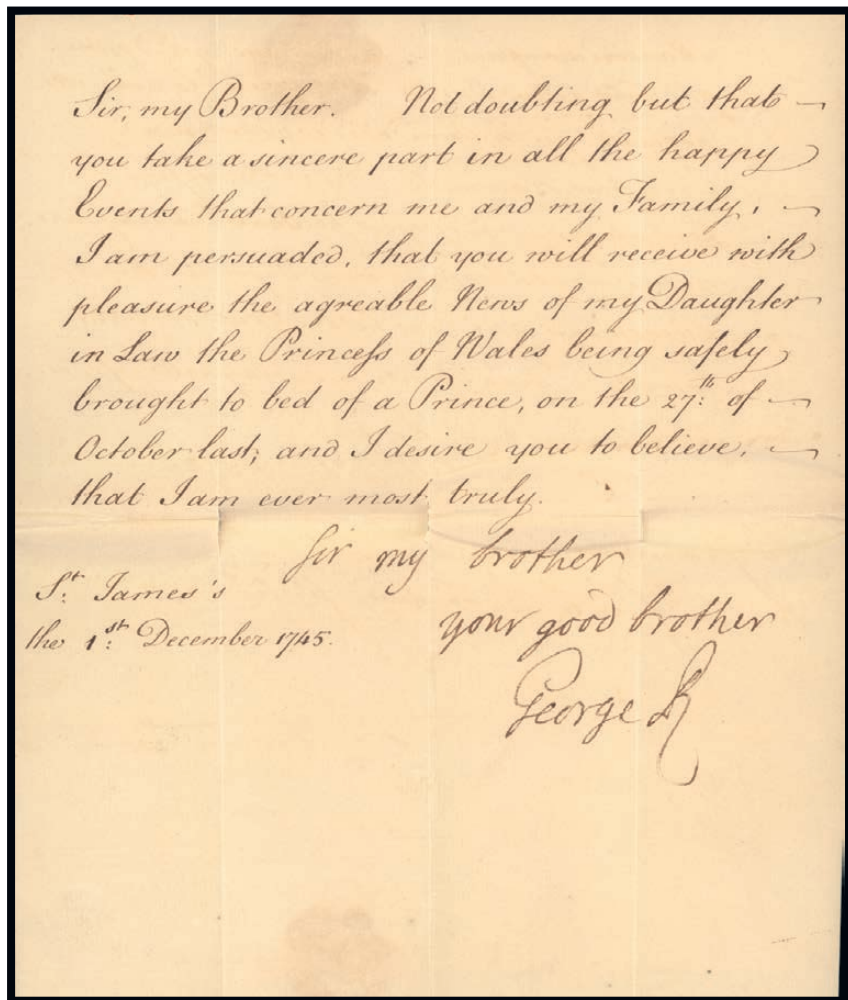 Sir, my Brother. Not doubting but that
you take a sincere part in all the happy
Events that concern me and my Family,
I am persuaded, that you will receive with
pleasure the agreable News of my Daughter
in Law the Princess of Wales being safely
brought to bed of a Prince, on the 27.th of
October last; and I desire you to believe,
that I am ever most truly.
Sir my brother
your good brother
George R
St. James's
the 1.st December 1745.